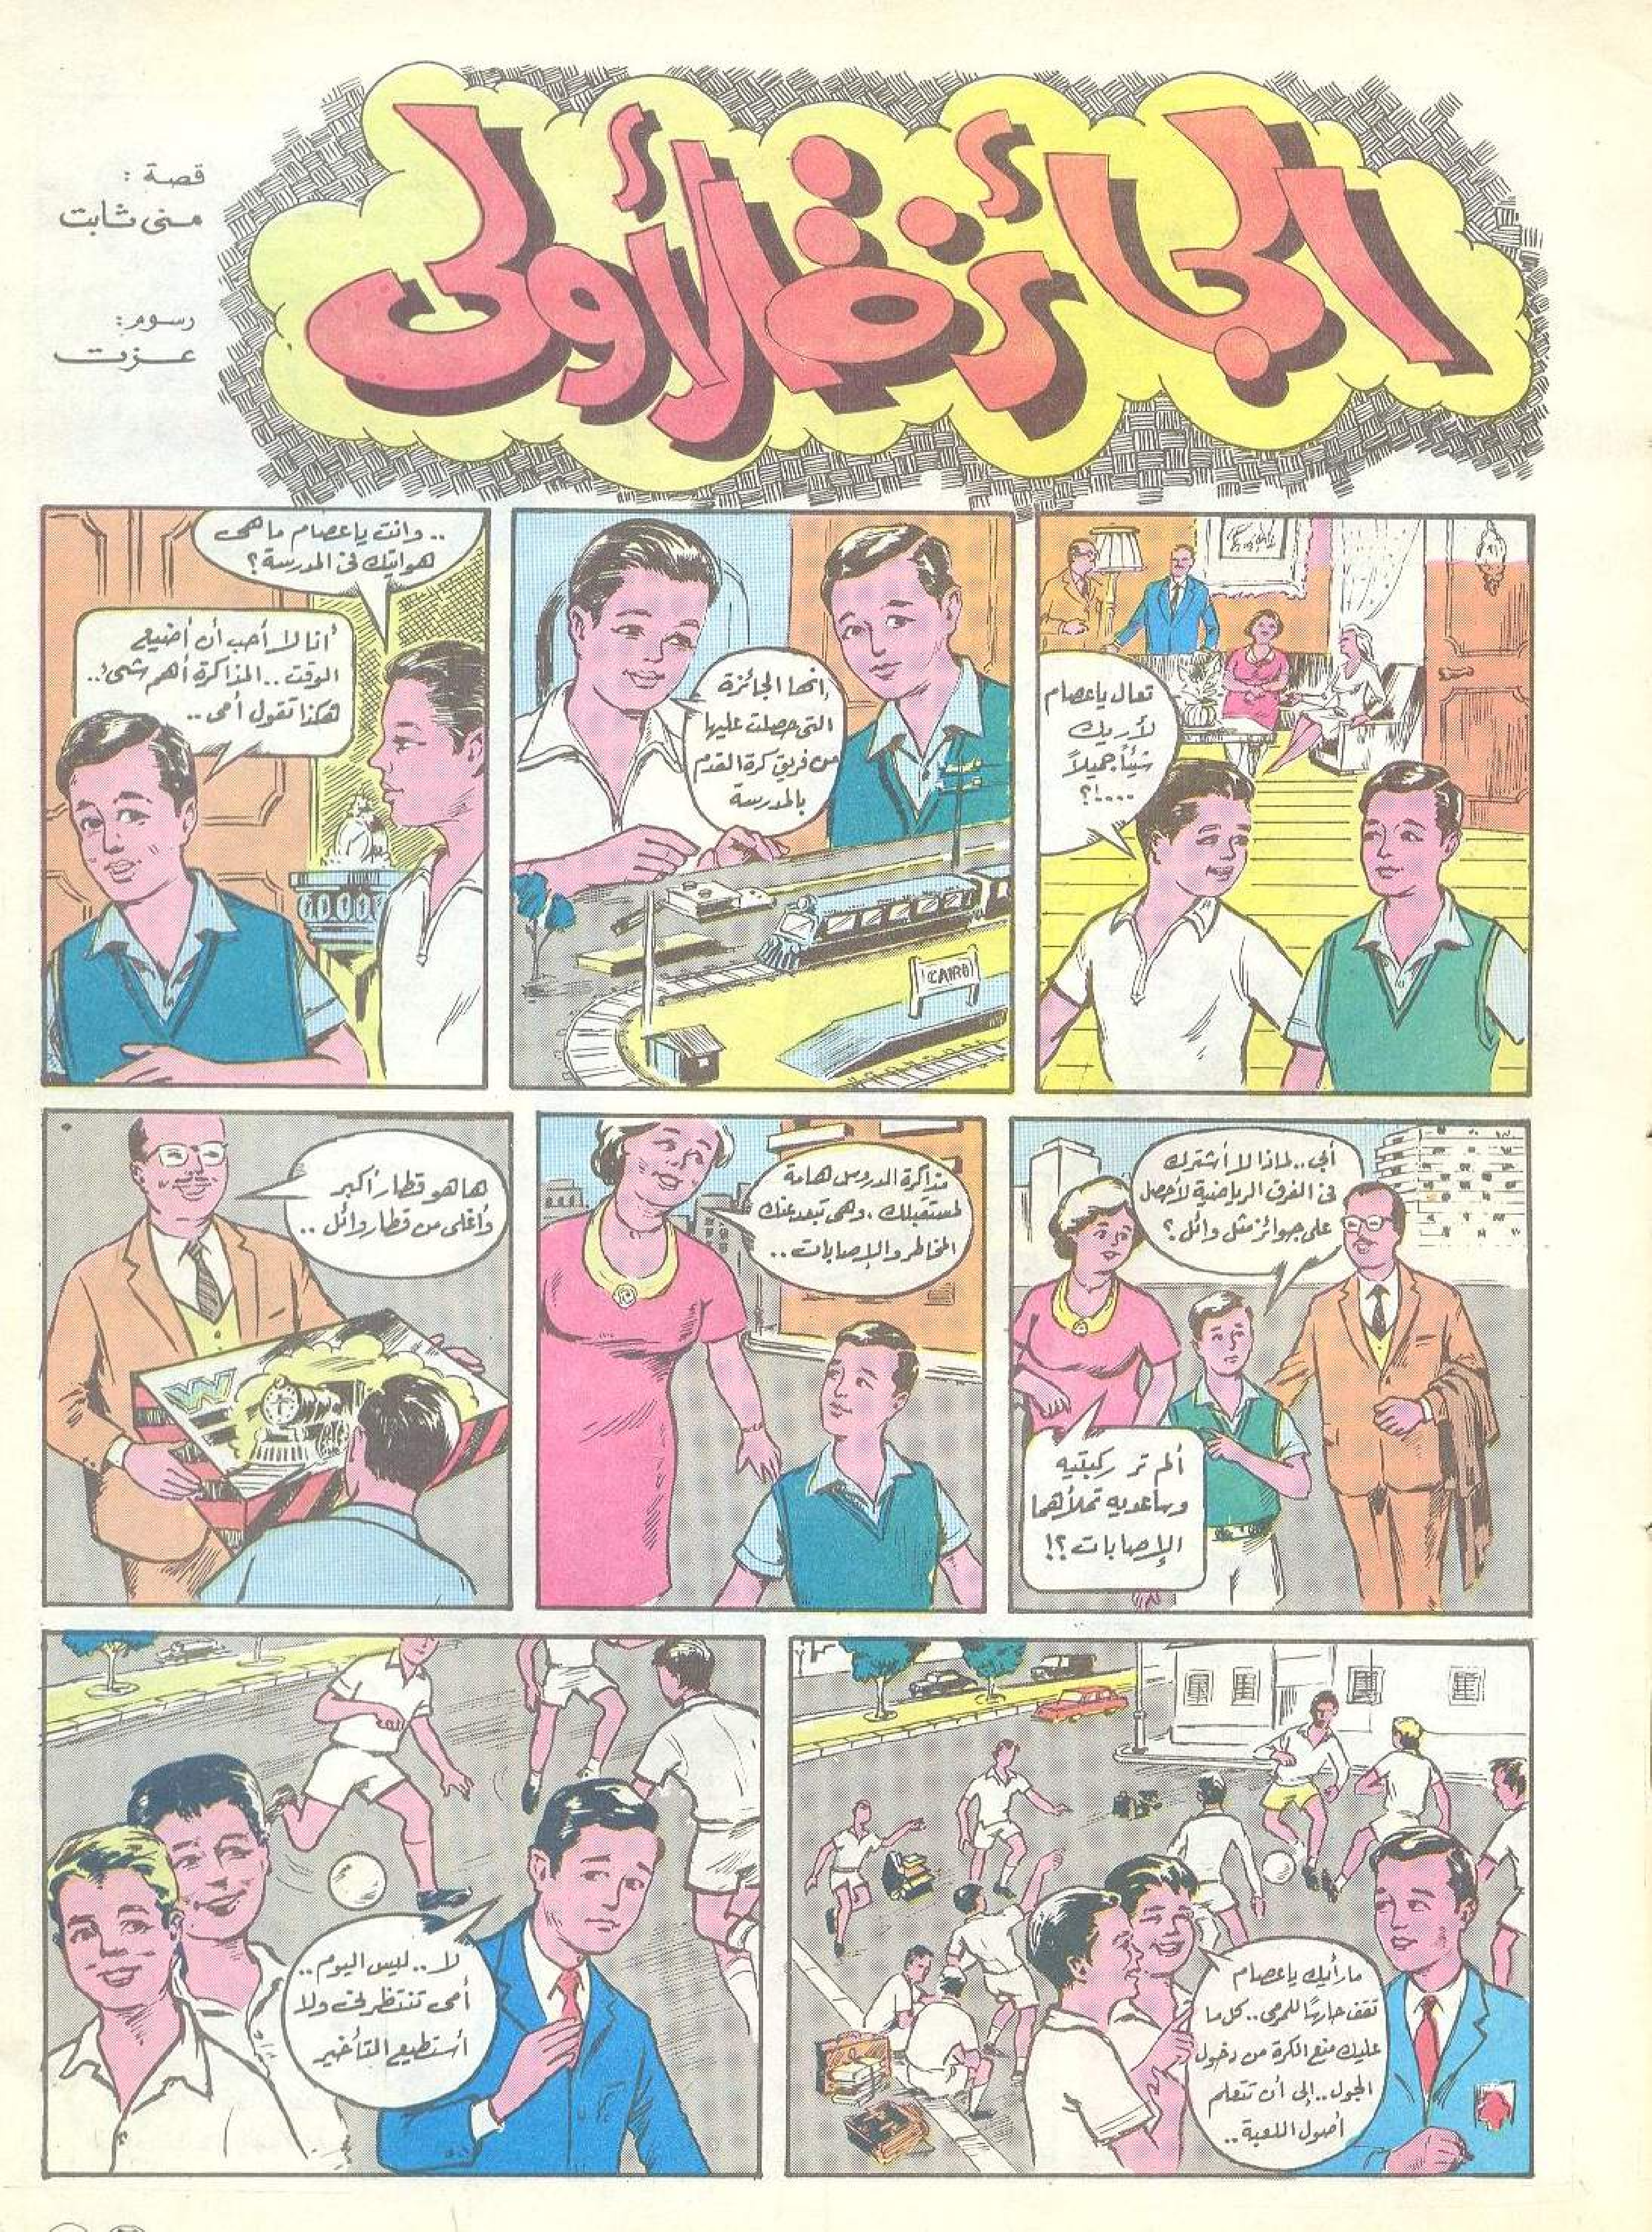 الجائزة الأولى
قصة :
منى ثابت
رسوم:
عزت
تعال ياعصام
لأريك
شيئاً جميلاً
....!؟
إنها الجائزة
التى حصلت عليها
من فريق كرة القدم
بالمدرسة
.. وانت ياعصام ماهى
هوايتك فى المدرسة؟
أنا لا أحب أن أضيع
الوقت .. المذاكرة أهم شىء ..
هكذا تقول أمى ..
أبى .. لماذا لا أشترك
فى الفرق الرياضية لأحصل
على جوائز مثل وائل ؟
ألم تر ركبتيه
وساعديه تملأهما
الإصابات ؟!
مذاكرة الدروس هامة
لمستقبلك ، وهى تبعد عنك
المخاطر والإصابات ..
ها هو قطار أكبر
وأغلى من قطار وائل ..
W
CAIRO
ما رأيك ياعصام
تقف حارسًا للمرمى .. كل ما
عليك منع الكرة من دخول
الجول .. إلى أن تتعلم
أصول اللعبة ..
لا .. ليس اليوم ..
أمى تنتظرنى ولا
أستطيع التأخير